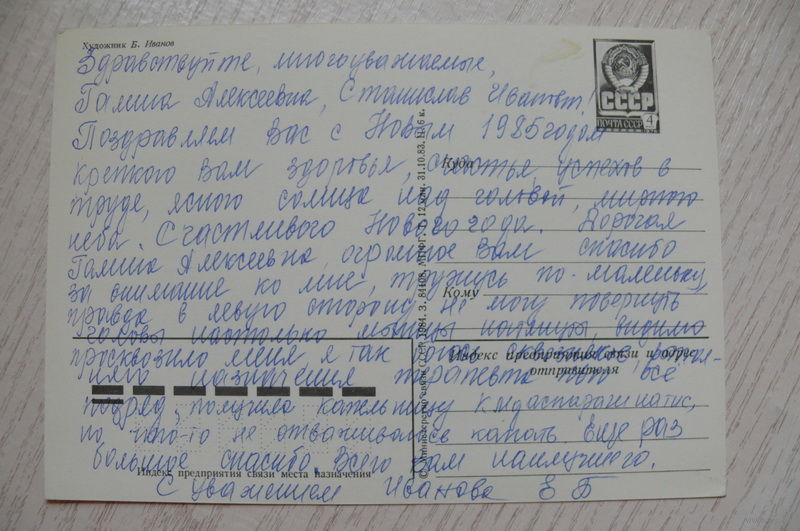 Художник Б. Иванов
СССР
ПОЧТА СССР 4
Здравствуйте, многоуважаемые,
Галина Алексеевна, Станислав
Поздравляем Вас с Новым 1985 годом
крепкого Вам здоровья, счастья, успехов в
труде, ясного солнца над головой, мирного
неба. Счастливого Нового года. Дорогая
Галина Алексеевна, огромное Вам спасибо
за внимание ко мне, тружусь по-маленьку
правда в левую сторону не могу повернуть
головы настолько мышцы видимо
просквозило меня я так
назначения терапевта пью всё
подряд, получила капельницу
но что-то не отваживалась капать. Еще раз
большое спасибо. Всего Вам наилучшего.
С уважением Иванова Е Б
Куда
Кому
Индекс предприятия связи и адрес
отправителя
Индекс предприятия связи места назначения
© Министерство связи СССР. 1984. З. 84108. МПФГ.
31.10.83. 6 к.